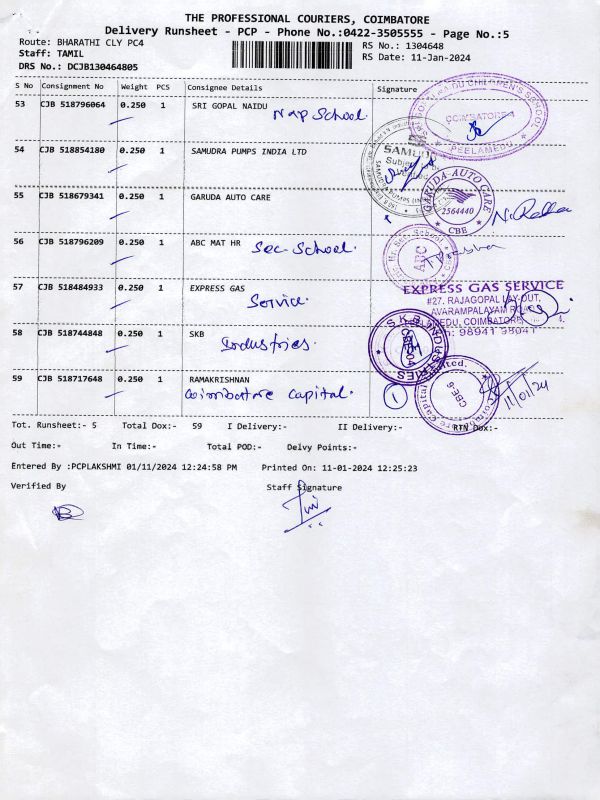 THE PROFESSIONAL COURIERS, COIMBATORE
Delivery Runsheet - PCP - Phone No.:0422-3505555 - Page No.:5
Route: BHARATHI CLY PC4
RS No.: 1304648
Staff: TAMIL
RS Date: 11-Jan-2024
DRS No.: DCJB130464805
S No Consignment No Weight PCS Consignee Details Signature
53 CJB 518796064 0.250 1 SRI GOPAL NAIDU
Nap School.
CHILDREN'S SCHOOL
COIMBATORE
PEELAMEDU
54 CJB 518854180 0.250 1 SAMUDRA PUMPS INDIA LTD
SAMUDRA
55 CJB 518679341 0.250 1 GARUDA AUTO CARE
GARUDA AUTO CARE
2564440
CBE
56 CJB 518796209 0.250 1 ABC MAT HR Sec School.
ABC
57 CJB 518484933 0.250 1 EXPRESS GAS
Service.
EXPRESS GAS SERVICE
#27, RAJAGOPAL LAY-OUT,
AVARAMPALAYAM
COIMBATORE
98941 98041
58 CJB 518744848 0.250 1 SKB
Industries.
SKB INDUSTRIES
59 CJB 518717648 0.250 1 RAMAKRISHNAN
Coimbatore Capital.
1
Coimbatore Capital Limited.
CBE-6
11/01/24
Tot. Runsheet:- 5 Total Dox:- 59 I Delivery:- II Delivery:- RTN Dox:-
Out Time:- In Time:- Total POD:- Delvy Points:-
Entered By :PCPLAKSHMI 01/11/2024 12:24:58 PM Printed On: 11-01-2024 12:25:23
Verified By Staff Signature